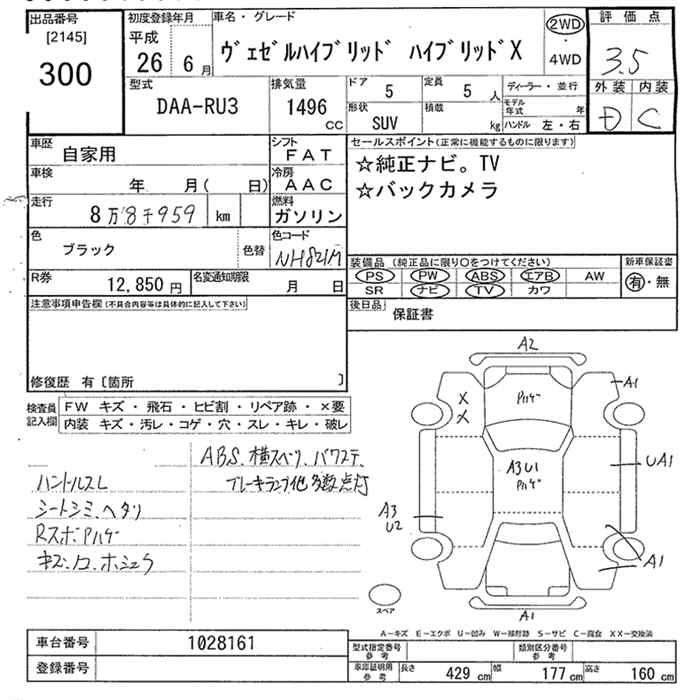 出品番号
[2145]
300
初度登録年月
平成
26 6月
車名・グレード
ヴェゼルハイブリッド ハイブリッドX
2WD
・
4WD
評価点
3.5
外装 内装
D C
型式
DAA-RU3
排気量
1496
CC
ドア
5
定員
5 人
形状
SUV
積載
kg
ディーラー・並行
モデル年式 年
ハンドル 左・右
車歴
自家用
シフト
FAT
車検
年 月( 日)
冷房
AAC
走行
8万8千959 km
燃料
ガソリン
色
ブラック
色替
色コード
NH821M
R券
12,850円
名変通知期限
月 日
セールスポイント(正常に機能するものに限ります)
☆純正ナビ。TV
☆バックカメラ
装備品(純正品に限り○をつけてください)
PS PW ABS エアB AW
SR ナビ TV カワ
新車保証書
有・無
後日品
保証書
注意事項申告欄(不具合内容等は具体的に記入して下さい)
修復歴 有〔箇所 〕
検査員記入欄
FW キズ・飛石・ヒビ割・リペア跡・×要
内装 キズ・汚レ・コゲ・穴・スレ・キレ・破レ
ABS、横スベリ、パワステ、
ブレーキランプ他多数点灯
ハンドルスレ
シートシミ、ヘタリ
Aハゲ
A2
A1
X
X
Pハゲ
A3 U1
Pハゲ
UA1
A3
U2
A1
A1
スペア
A−キズ E−エクボ U−凹み W−補修跡 S−サビ C−腐食 XX−交換済
車台番号
1028161
登録番号
型式指定番号
参考
類別区分番号
参考
車庫証明用
参考
長さ 429 cm 幅 177 cm 高さ 160 cm